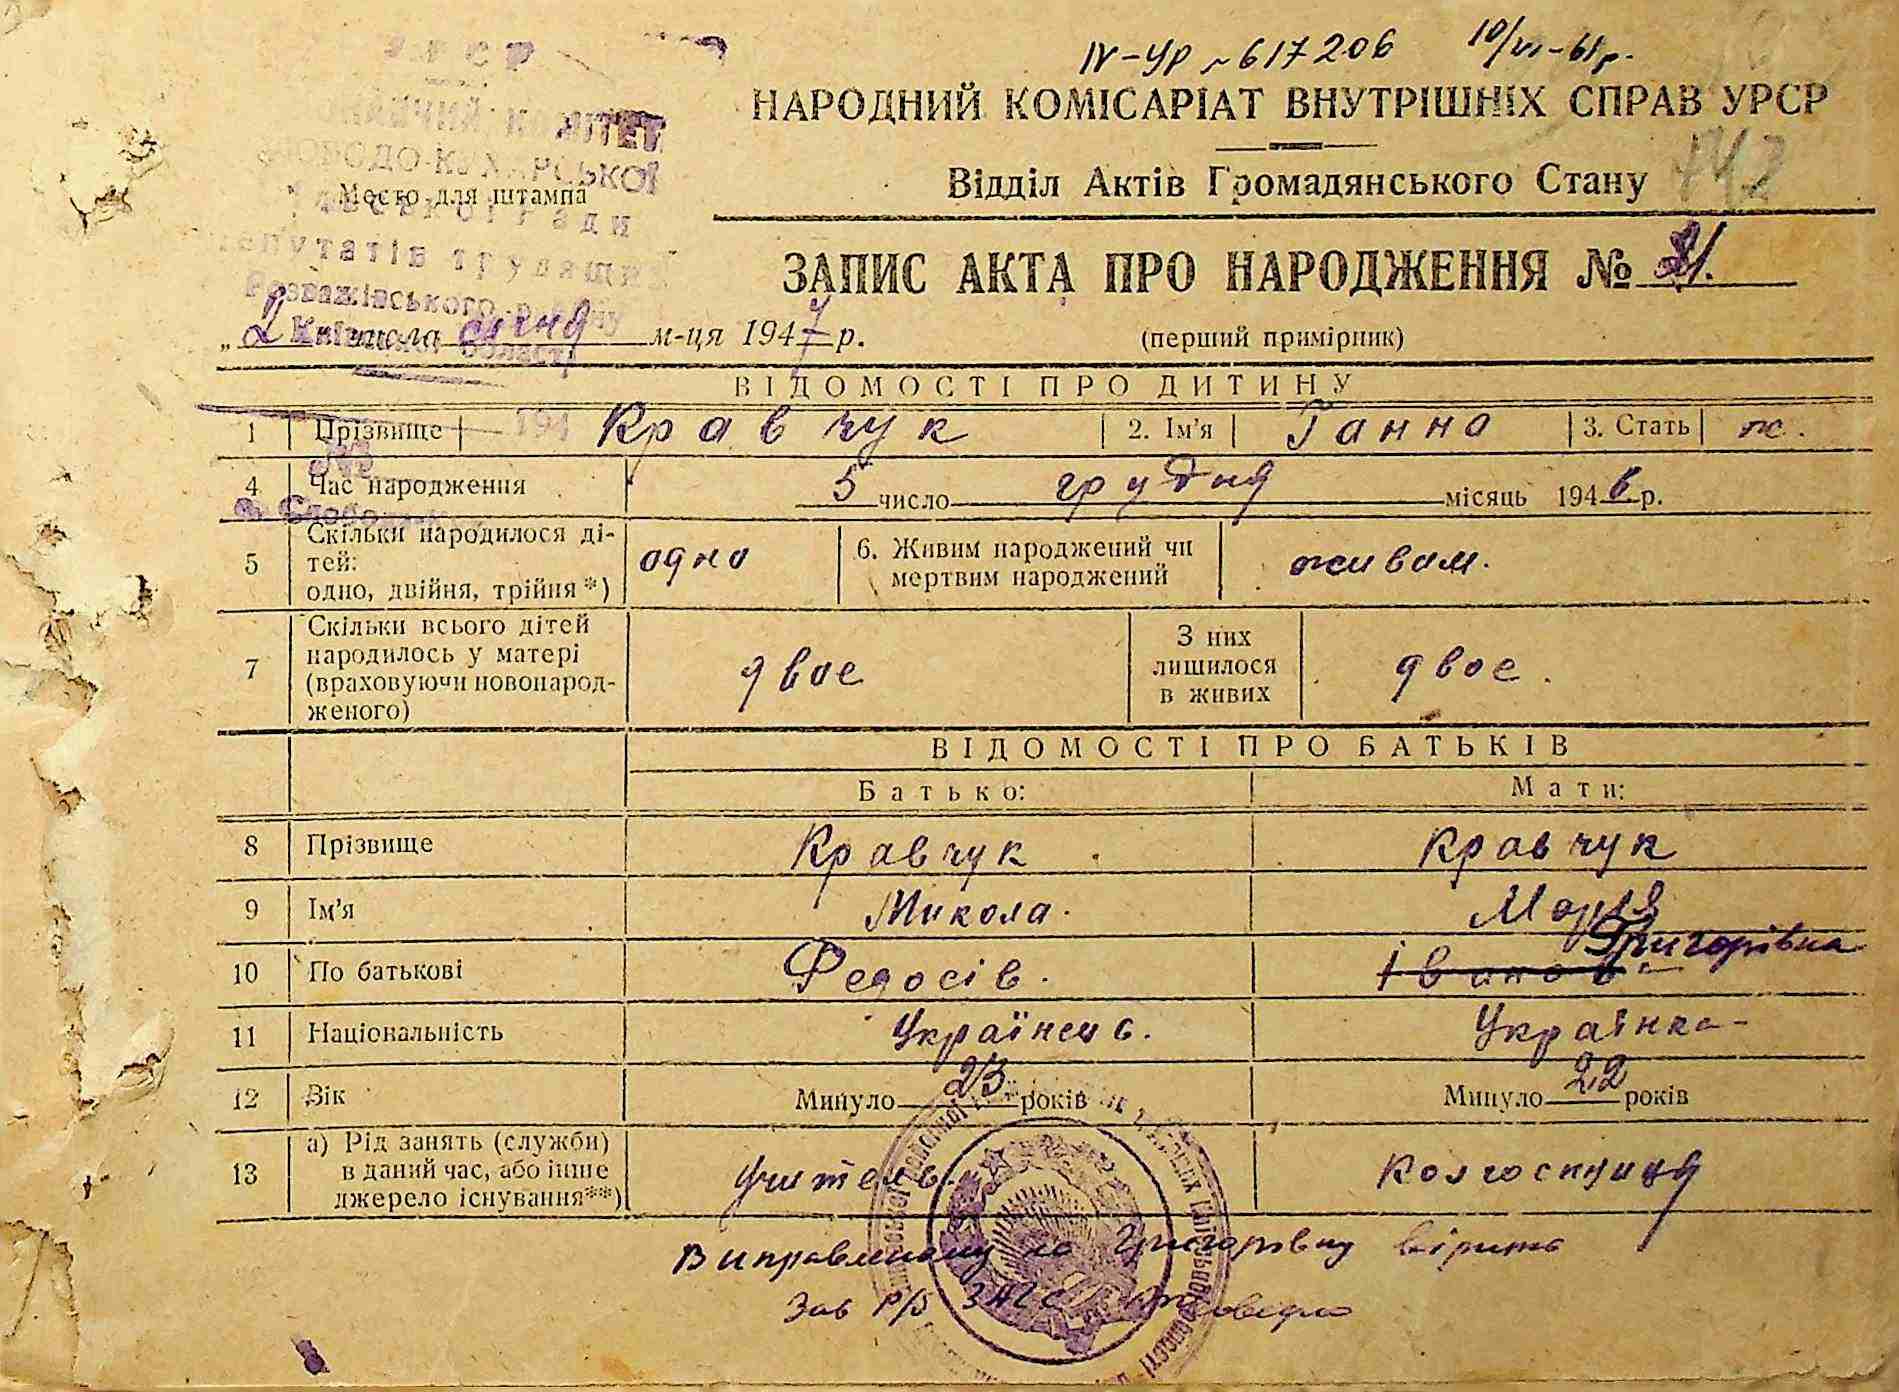 IV-УР № 617206 10/VI-61р.
НАРОДНИЙ КОМІСАРІАТ ВНУТРІШНІХ СПРАВ УРСР
Відділ Актів Громадянського Стану
742
УРСР
КОМІТЕТ
СЛОБОДО-КУХАРСЬКОЇ
Место для штампа
сільської ради
депутатів трудящих
Розважівського р-ну
Київської області
194
№
с. Слобода-К
ЗАПИС АКТА ПРО НАРОДЖЕННЯ № 21.
„ 2 числа січня м-ця 1947 р. (перший примірник)
ВІДОМОСТІ ПРО ДИТИНУ
1 Прізвище Кравчук 2. Ім'я Ганна 3. Стать ж.
4 Час народження 5 число грудня місяць 1946 р.
5 Скільки народилося ді-
тей:
одно, двійня, трійня*) одно 6. Живим народжений чи
мертвим народжений живим.
7 Скільки всього дітей
народилось у матері
(враховуючи новонарод-
женого) двое З них
лишилося
в живих двое.
ВІДОМОСТІ ПРО БАТЬКІВ
Батько: Мати:
8 Прізвище Кравчук Кравчук
9 Ім'я Микола. Марія
10 По батькові Федосів. Іванов. Григорівна
11 Національність Українець. Українка
12 Вік Минуло 23 років Минуло 22 років
13 а) Рід занять (служби)
в даний час, або інше
джерело існування**) учитель. колгоспниця
Виправленому на Григорівну вірить
Зав Р/б ЗАГС